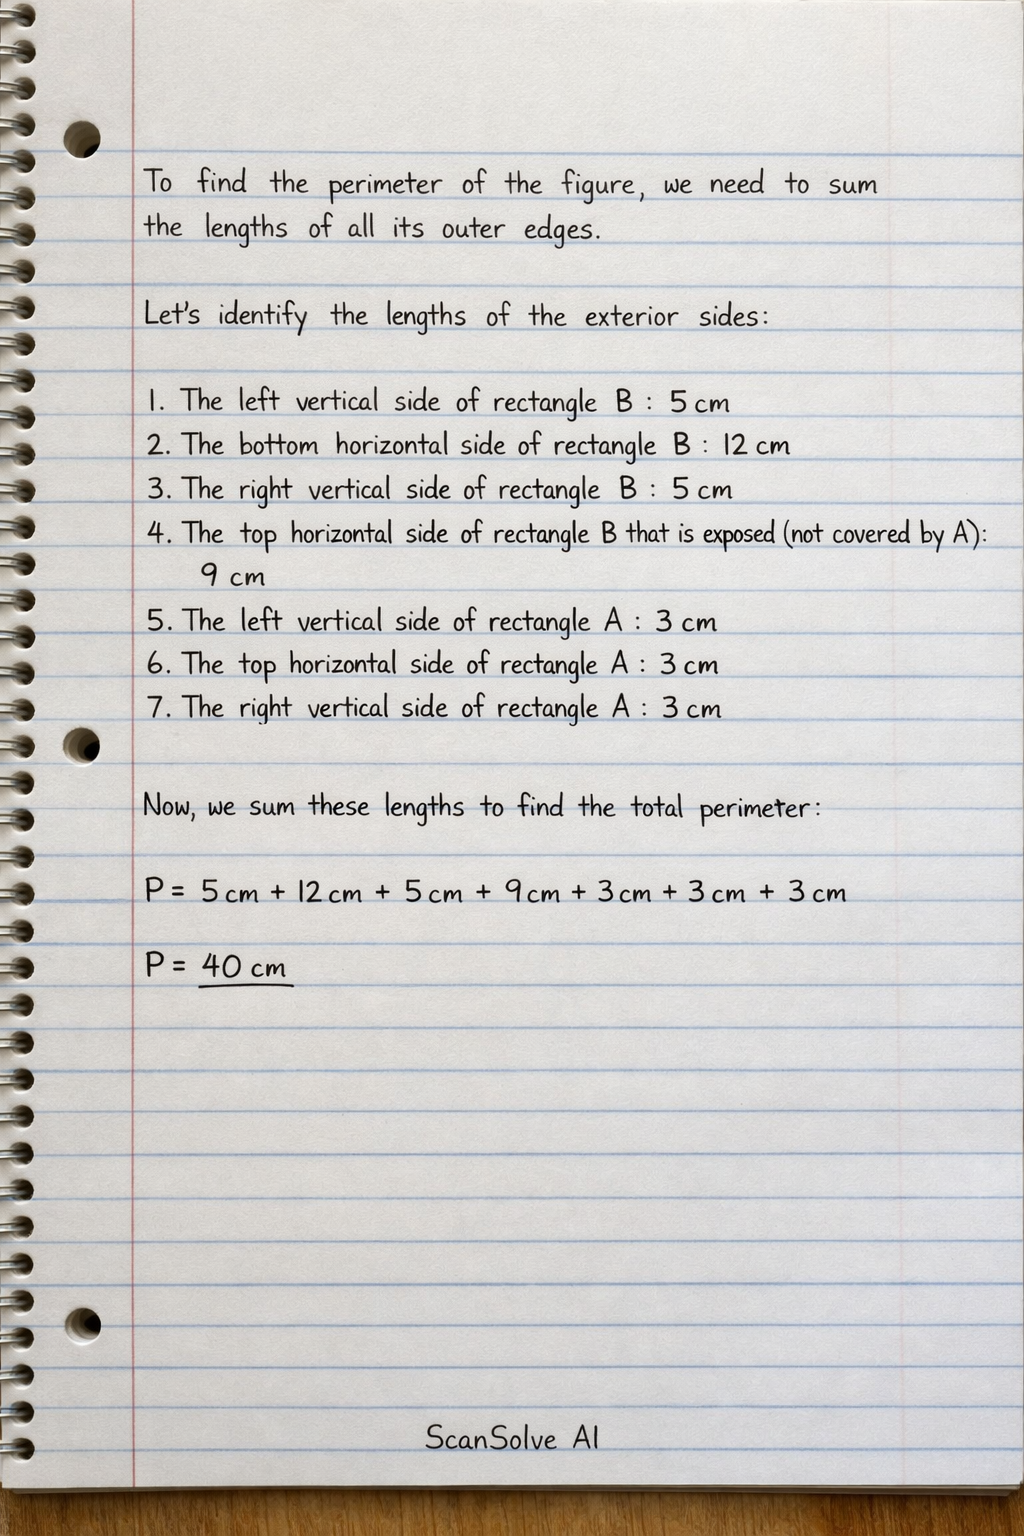 To find the perimeter of the figure, we need to sum
the lengths of all its outer edges.
Let's identify the lengths of the exterior sides:
1. The left vertical side of rectangle B : 5 cm
2. The bottom horizontal side of rectangle B : 12 cm
3. The right vertical side of rectangle B : 5 cm
4. The top horizontal side of rectangle B that is exposed (not covered by A):
9 cm
5. The left vertical side of rectangle A : 3 cm
6. The top horizontal side of rectangle A : 3 cm
7. The right vertical side of rectangle A : 3 cm
Now, we sum these lengths to find the total perimeter:
P = 5 cm + 12 cm + 5 cm + 9 cm + 3 cm + 3 cm + 3 cm
P = 40 cm
ScanSolve AI